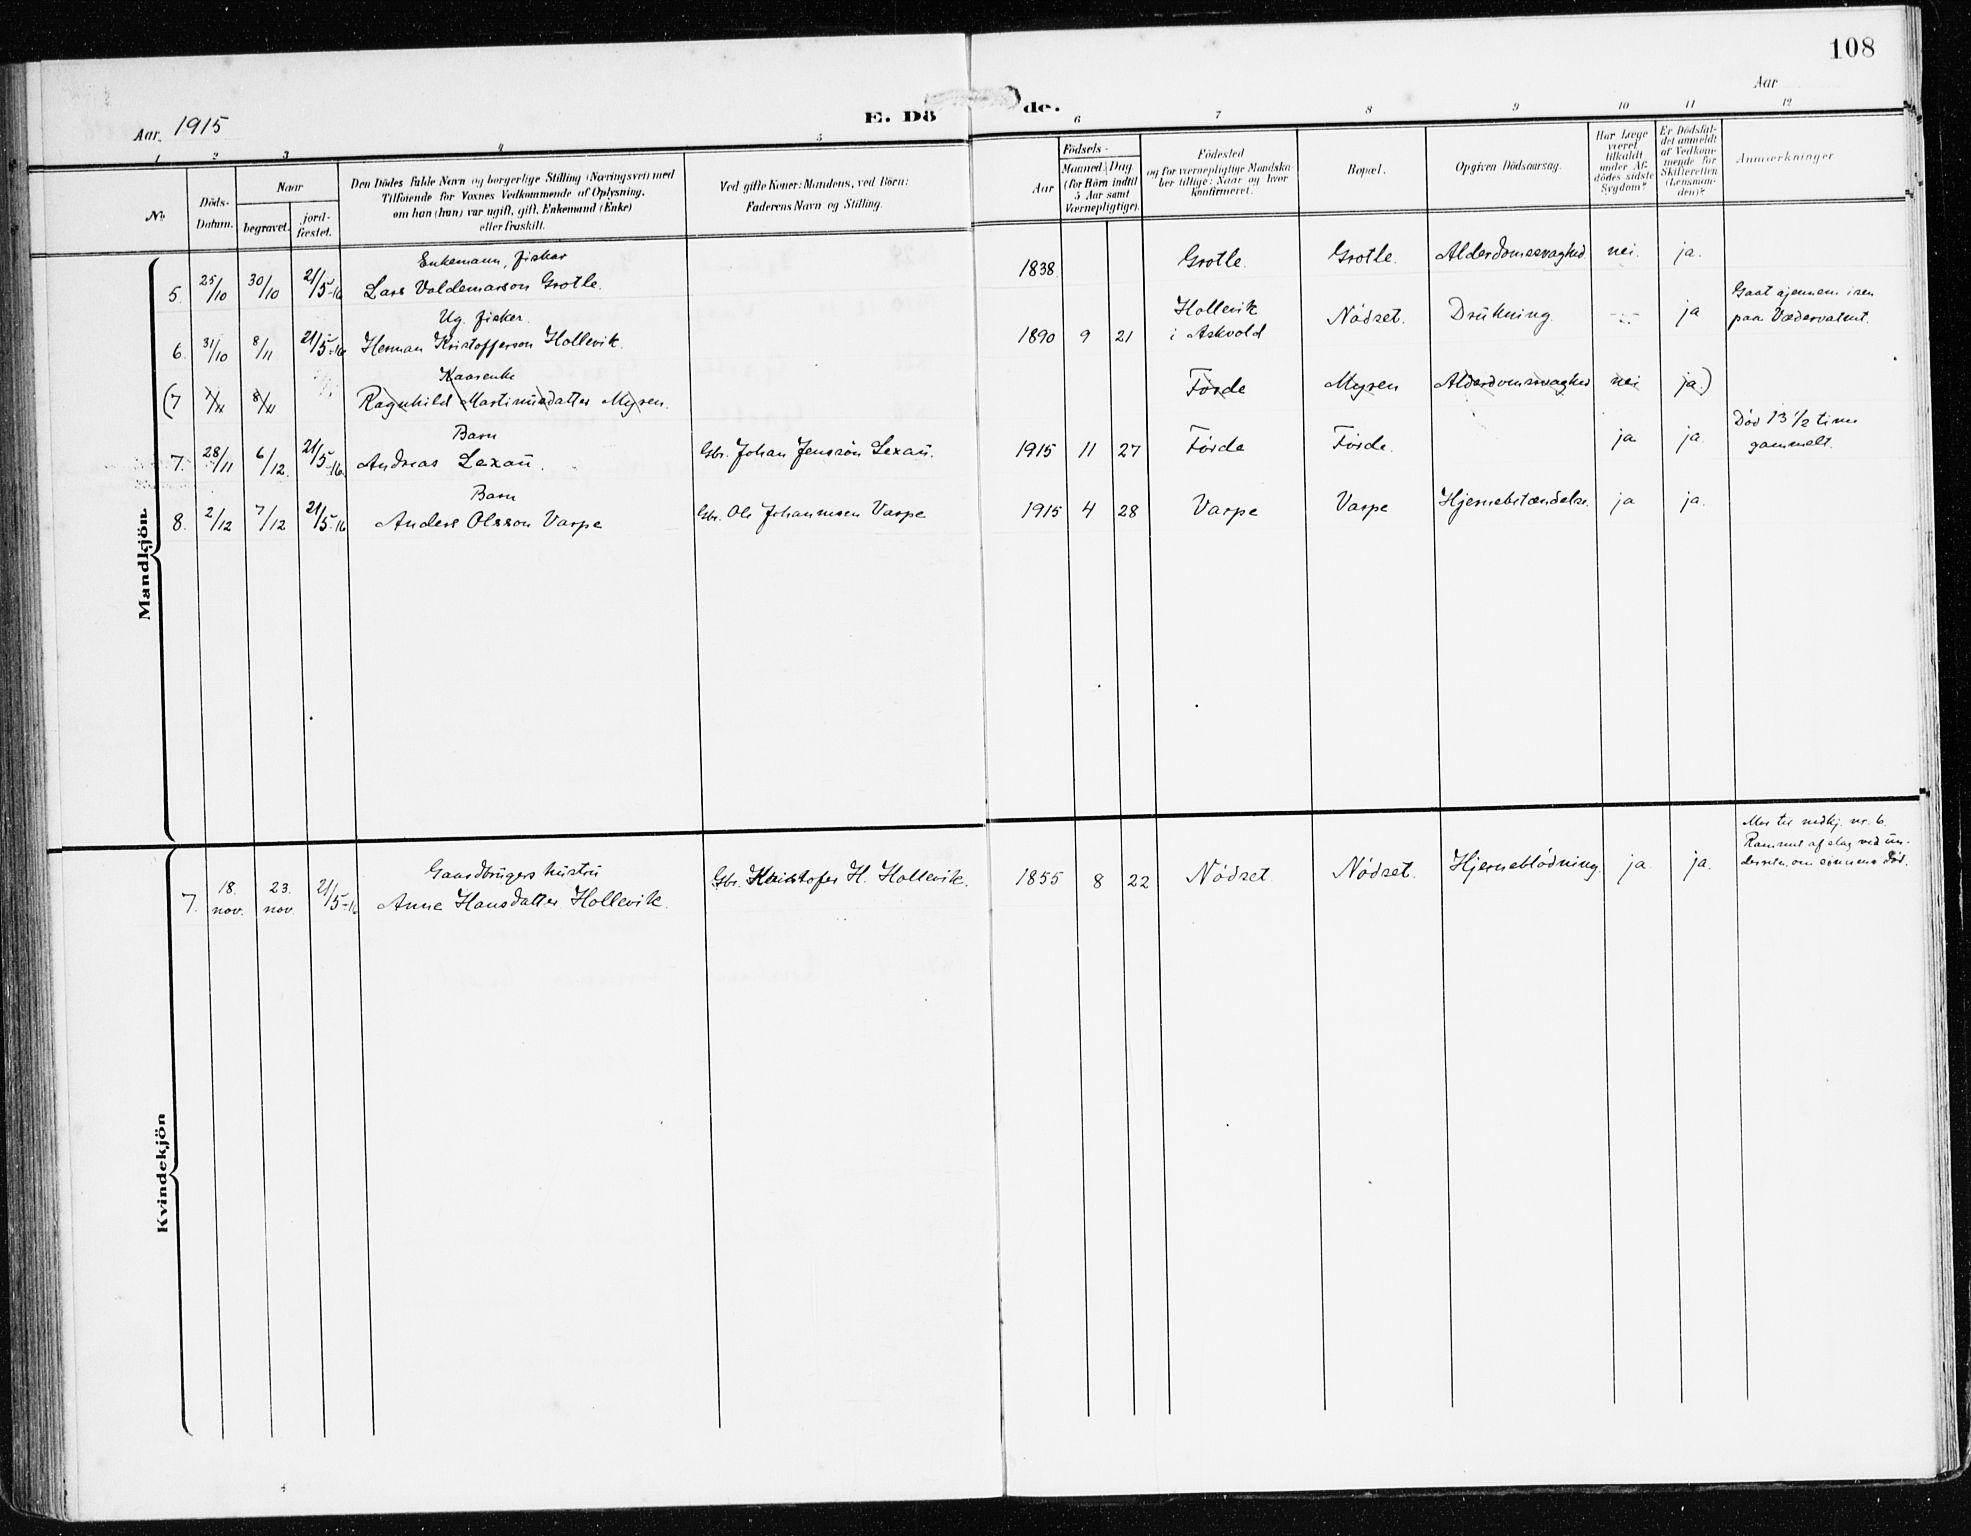 108
Aar 1915
E. Döde.
Aar
1 2 3 4 5 6 7 8 9 10 11 12
No
Döds-Datum.
Naar
begravet.
jord-fæstet.
Den Dödes fulde Navn og borgerlige Stilling (Næringsvei) med
Tilföiende for Voxnes Vedkommende af Oplysning,
om han (hun) var ugift, gift, Enkemand (Enke)
eller fraskilt.
Ved gifte Koner: Mandens, ved Börn:
Faderens Navn og Stilling.
Födsels-
Aar
Maaned Dag
(for Börn indtil
5 Aar samt
Værnepligtige).
Födested
og for værnepligtige Mandska-
ber tillige: Naar og hvor
konfirmeret.
Bopæl.
Opgiven Dödsaarsag.
Har Læge
været
tilkaldt
under Af-
dödes sidste
Sygdom?
Er Dödsfal-
det anmeldt
af Vedkom-
mende for
Skifteretten
(Lensman-
den)?
Anmærkninger
Mandkjön
Enkemann, fisker
5. 25/10 30/10 21/5-16 Lars Valdemarson Grotle. 1838. Grotle. Grotle. Alderdomssvaghed nei. ja.
Ug. fisker.
6. 31/10 8/11 21/5-16 Herman Kristofferson Hollevik. 1890 9 21 Hollevik i Askvold Nödset. Drukning ja Gaat gjennem isen
paa Vædervatnet.
Kaarenke
(7 8/11 Ragnhild Martinusdatter Myren. Førde Myren Alderdomssvaghed nei ja)
Barn
7. 28/11 6/12. 21/5-16. Andreas Lexau. Gbr. Johan Jensson Lexau. 1915 11 27 Førde Førde. ja ja. Död 13 1/2 time
gammelt.
Barn
8. 2/12 7/12 21/5-16 Anders Olsson Varpe Gbr. Ole Johannesen Varpe 1915 4 28 Varpe Varpe Hjernebetændelse. ja ja.
Kvindekjön
Gaardbrugers hustru
7. 18. nov. 23. nov. 21/5-16 Anne Hansdatter Hollevik. Gbr. Kristofer H. Hollevik. 1855 8 22 Nödset Nödset. Hjerneblödning. ja. ja. Mor til mdkj. nr. 6.
Rammet af slag ved un-
om sönnens död.